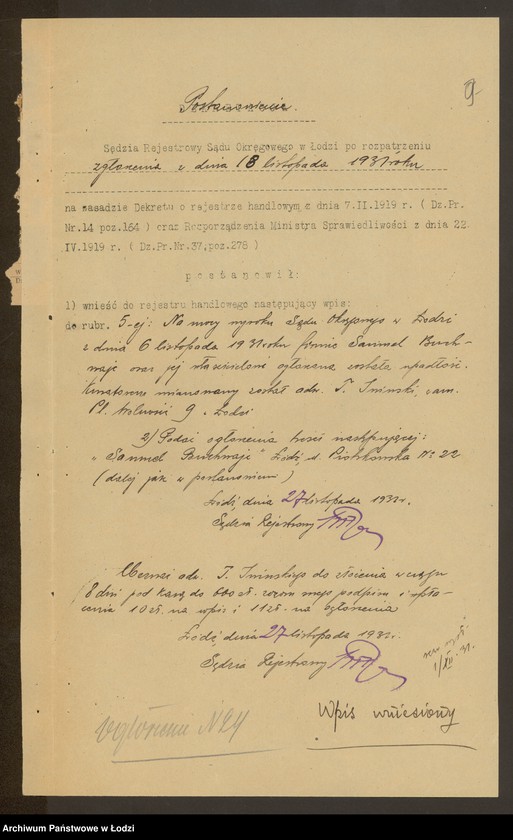 9
Postanowienie.
Sędzia Rejestrowy Sądu Okręgowego w Łodzi po rozpatrzeniu
zgłoszenia z dnia 18 listopada 1931 roku
na zasadzie Dekretu o rejestrze handlowym z dnia 7.II.1919 r. ( Dz.Pr.
Nr.14 poz.164 ) oraz Rozporządzenia Ministra Sprawiedliwości z dnia 22
IV.1919 r. ( Dz.Pr.Nr.37,poz.278 )
p o s t a n o w i ł:
1) wnieść do rejestru handlowego następujący wpis:
do rubr. 5-ej: Na mocy wyroku Sądu Okręgowego w Łodzi
z dnia 6 listopada 1931 roku firmie Samuel
oraz jej ogłoszona została upadłość.
Kuratorem mianowany został adw. T. zam.
Pl. Wolności 9 w Łodzi
2) Podać ogłoszenia treści następującej:
„Samuel " Łódź, ul. Piotrkowska № 22
(dalej jak w postanowieniu)
Łódź dnia 27 listopada 1931 r.
Sędzia Rejestrowy
adw. T. do złożenia w ciągu
8 dni pod karą do 600 zł. mego podpisu i
10 zł. na wpis i 11 zł. na ogłoszenia
Łódź dnia 27 listopada 1931 r.
Sędzia Rejestrowy
1/XII 31.
Wpis wniesiony
Ogłoszenie N 24
Archiwum Państwowe w Łodzi